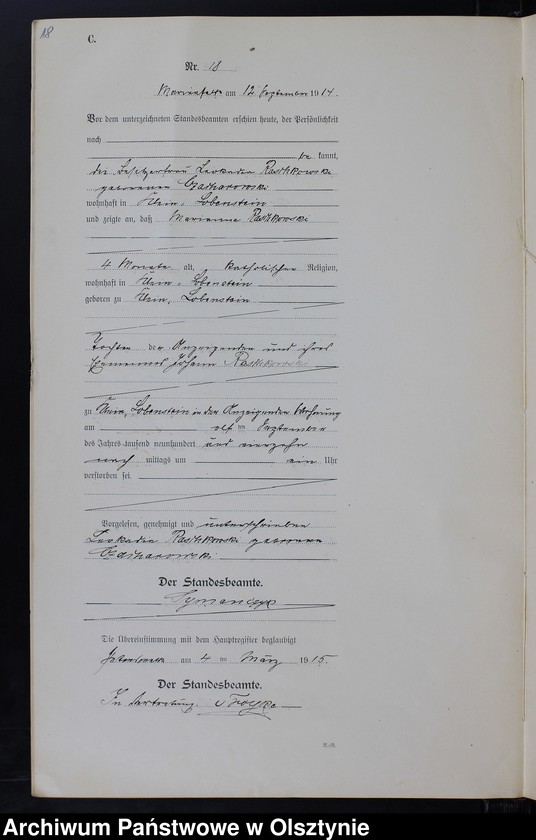 18
C.
Nr. 18
am 12 September 1914.
Vor dem unterzeichneten Standesbeamten erschien heute, der Persönlichkeit
nach
be kannt,
die Besitzerfrau Leokadia Raschkowski
geborene
wohnhaft in Klein, Lobenstein
und zeigte an, daß Marianna Raschkowski
4 Monate alt, katholischer Religion,
wohnhaft in Klein, Lobenstein
geboren zu Klein, Lobenstein
Tochter der Anzeigenden und ihres
Ehemannes Johann Raschkowski
zu Klein, Lobenstein in der Anzeigenden Wohnung
am elf ten September
des Jahres tausend neunhundert und vierzehn
nach mittags um ein Uhr
verstorben sei.
Vorgelesen, genehmigt und unterschrieben
Leokadia Raschkowski geborene
Der Standesbeamte.
Die Übereinstimmung mit dem Hauptregister beglaubigt
am 4 ten März 1915.
Der Standesbeamte.
In Vertretung.
Archiwum Państwowe w Olsztynie